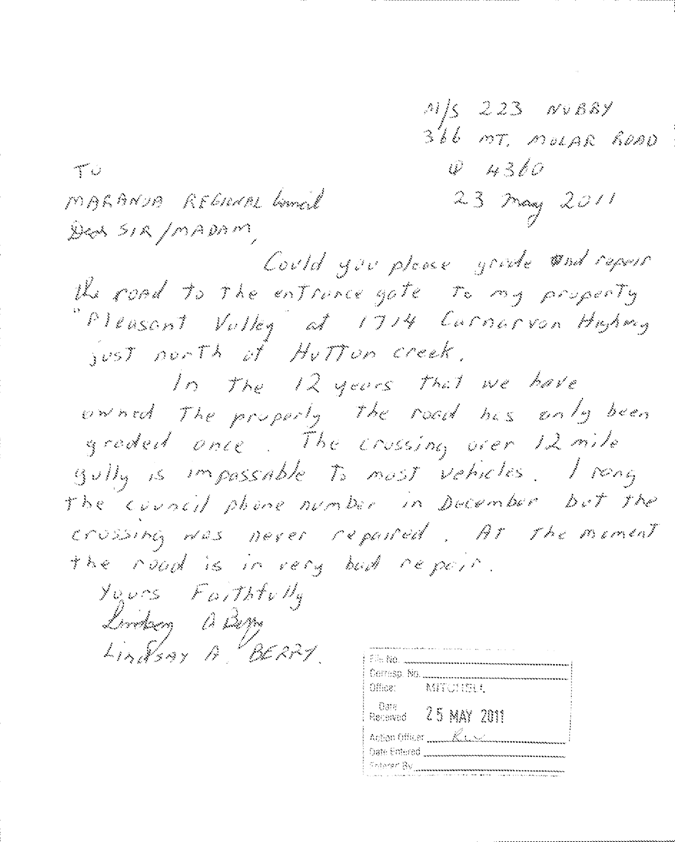 M/S 223 NUBBY
366 MT. MOLAR ROAD
Q 4360
23 May 2011
TO
MARANOA REGIONAL Council
Dear SIR/MADAM,
Could you please grade and repair
the road to the entrance gate to my property
"Pleasant Valley" at 1714 Carnarvon Highway
just north of Hutton creek.
In the 12 years that we have
owned the property the road has only been
graded once. The crossing over 12 mile
gully is impassable to most vehicles. I rang
the council phone number in December but the
crossing was never repaired. At the moment
the road is in very bad repair.
Yours Faithfully
Lindsay A Berry
LINDSAY A. BERRY.
File No.
Corresp. No.
Office: MITCHELL
Date
Received 25 MAY 2011
Action Officer
Date Entered
Entered By